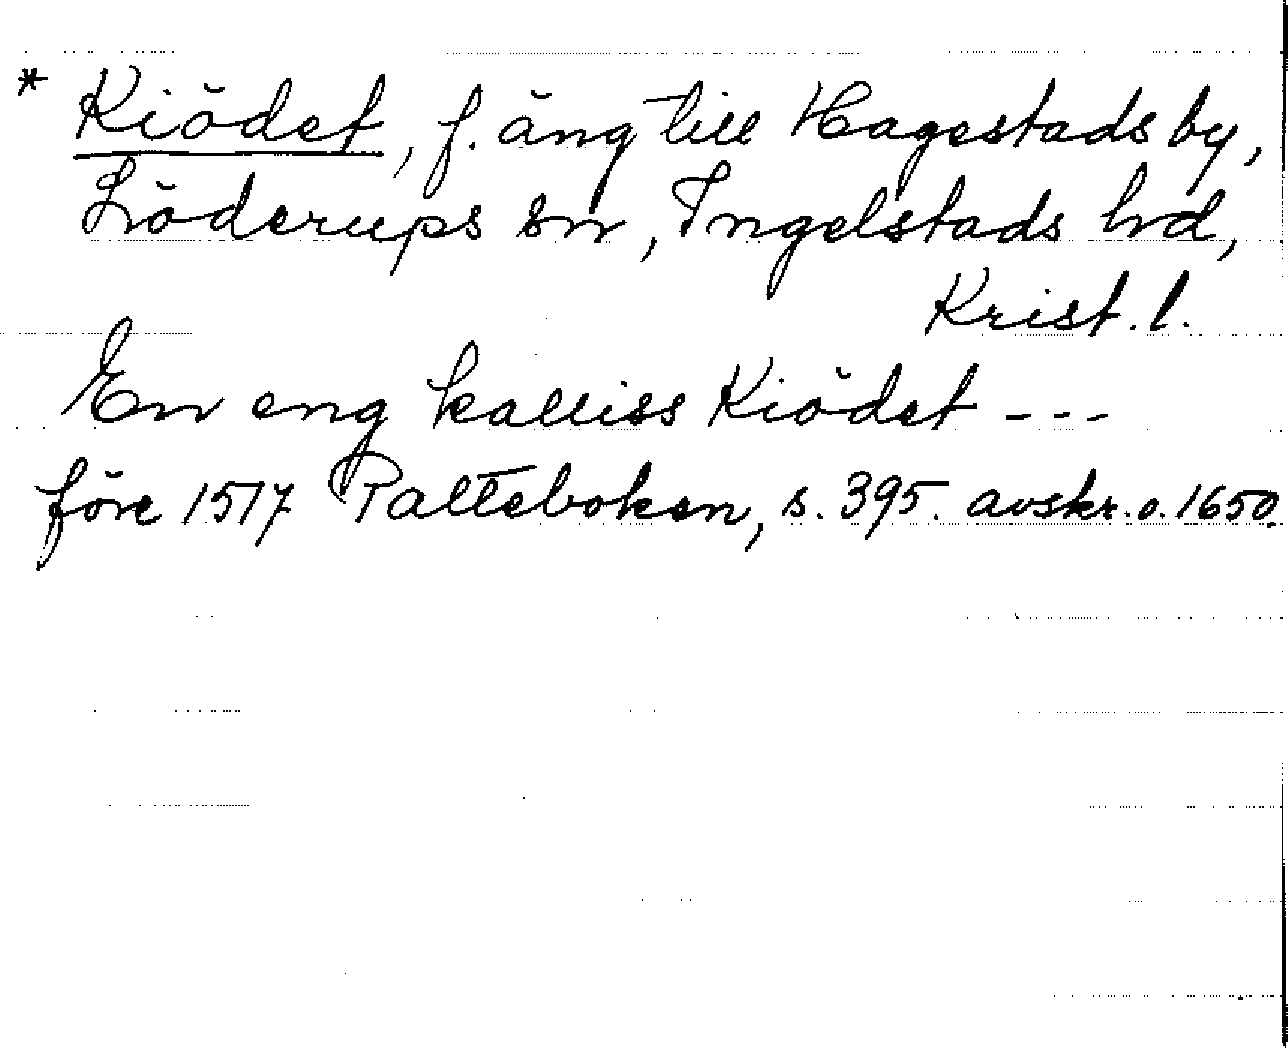 * Kiödet, f. äng till Hagestads by,
Löderups sn, Ingelstads hd,
Krist. l.
En eng kalliss Kiödet ---
före 1517 Palteboken, s. 395. avskr. o. 1650.